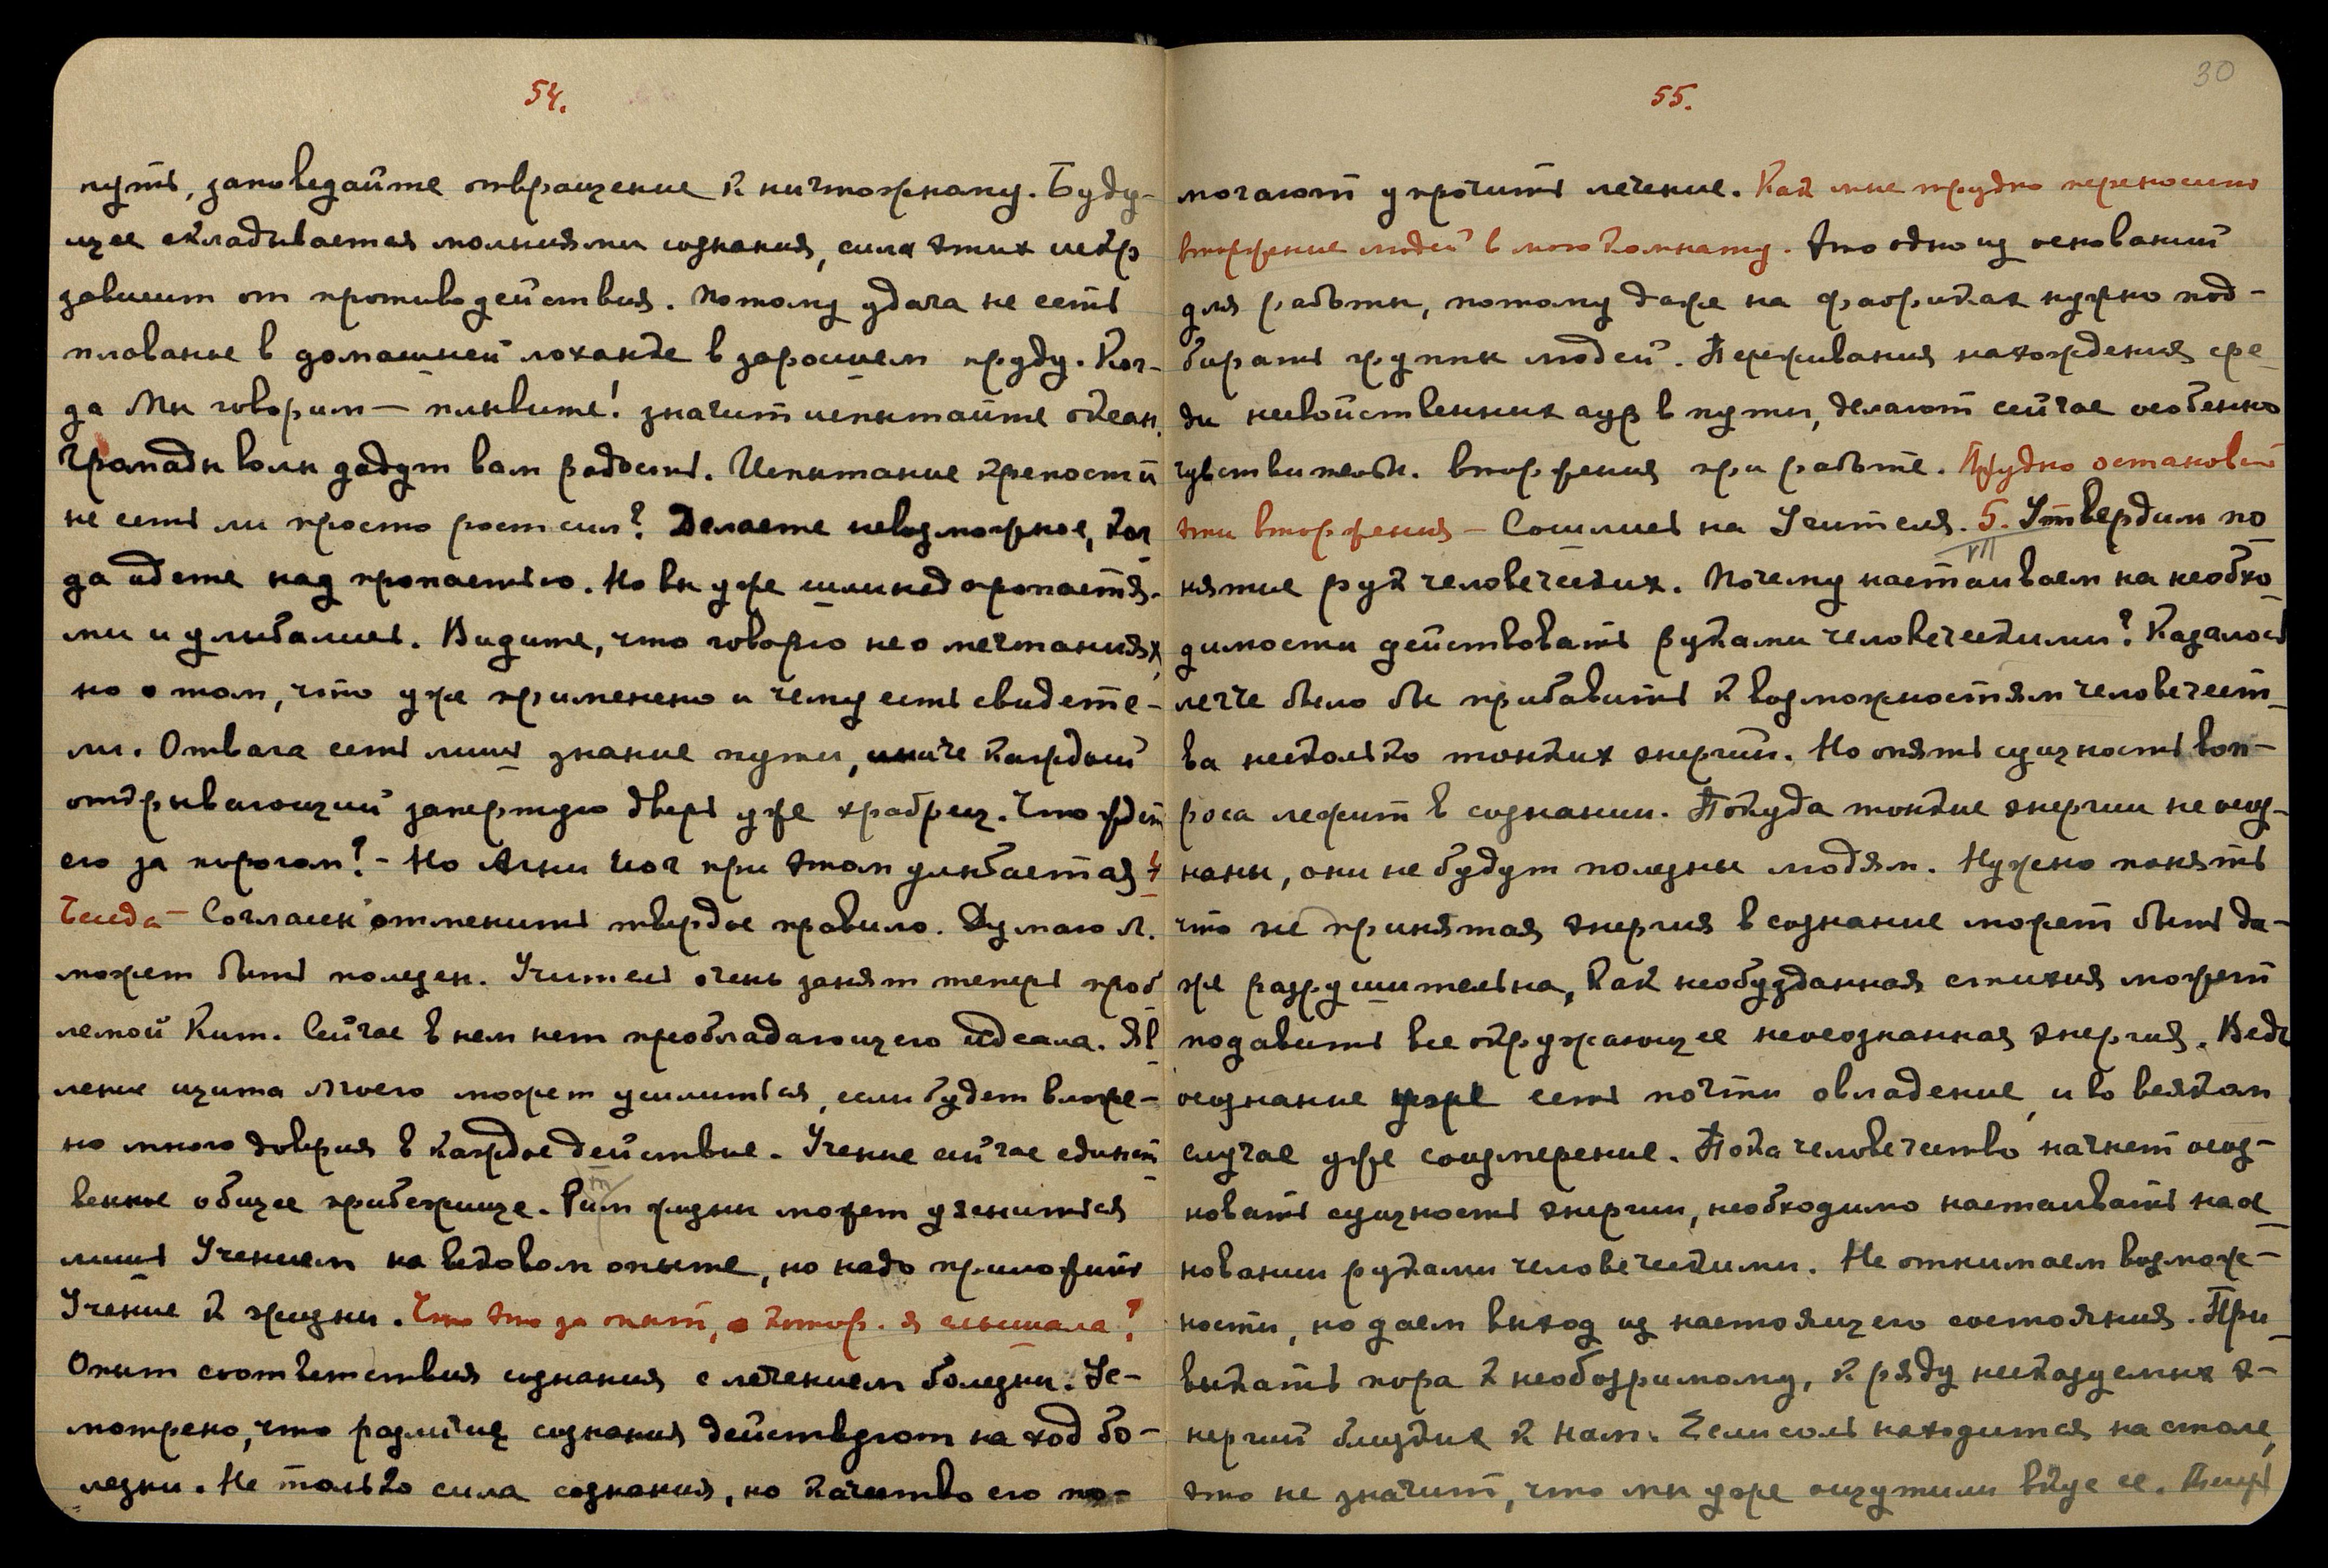 54.
путь, заповедайте отвращение к ничтожному. Буду-
щее складывается молниями сознания, сила этих искр
зависит от противодействия. Потому удача не есть
плаванье в домашней лоханке в заросшем пруду. Ког-
да Мы говорим — плывите! значит испытайте океан.
Громады волн дадут вам радость. Испытание крепости
не есть ли просто рост сил? Делаете невозможное, ког
да идете над пропастью. Но вы уже шли над пропастя-
ми и улыбались. Видите, что говорю не о мечтаниях,
но о том, что уже применено и чему есть свидете-
ли. Отвага есть лишь знание пути, иначе каждый
открывающий запертую дверь уже храбрец. Что ждет
его за порогом? - Но Агни Йог при этом улыбается 4
Согласен отменить твердое правило. Думаю Л.
может быть полезен. Учитель очень занят теперь проб
лемой Кит. Сейчас в нем нет преобладающего идеала. Яв
ление щита Моего может усилиться, если будет вложе-
но много доверия в каждое действие. Учение сейчас единст
венное общее прибежище. Ритм жизни может уясниться
лишь Учением на вековом опыте, но надо приложить
Учение к жизни. Что это за опыт, о котор. я слышала?
Опыт соответствия сознания с лечением болезни. Ус-
мотрено, что различие сознания действуют на ход бо-
лезни. Не только сила сознания, но качество его по-
55.
30
могают упрочить лечение. Как мне трудно переносить
вторжение людей в мою комнату. Это одно из оснований
для работы, потому даже на фабриках нужно под-
бирать группы людей. Переживания нахождения сре
ди несвойственных аур в пути, делают сейчас особенно
чувствительн. вторжения при работе. Трудно остановить
эти вторжения — Сошлись на Учителя. 5. Утвердим по
VII
нятие рук человеческих. Почему настаиваем на необхо
димости действовать руками человеческими? Казалось
легче было бы прибавить к возможностям человечест
ва несколько тонких энергий. Но опять сущность воп-
роса лежит в сознании. Покуда тонкие энергии не осоз-
наны, они не будут полезны людям. Нужно понять
что не принятая энергия в сознание может быть да-
же разрушительна, как необузданная стихия может
подавить все окружающее неосознанная энергия. Ведь
осознание уже есть почти овладение, и во всяком
случае уже соизмерение. Пока человечество начнет осоз-
новать сущность энергии, необходимо настаивать на ос
новании руками человеческими. Не отнимаем возмож-
ности, но даем выход из настоящего состояния. При
выкать пора к необозримому, к ряду несказуемых э-
нергий близких к Нам. Если соль находится на столе,
это не значит, что мы уже ощутили вкус ее.